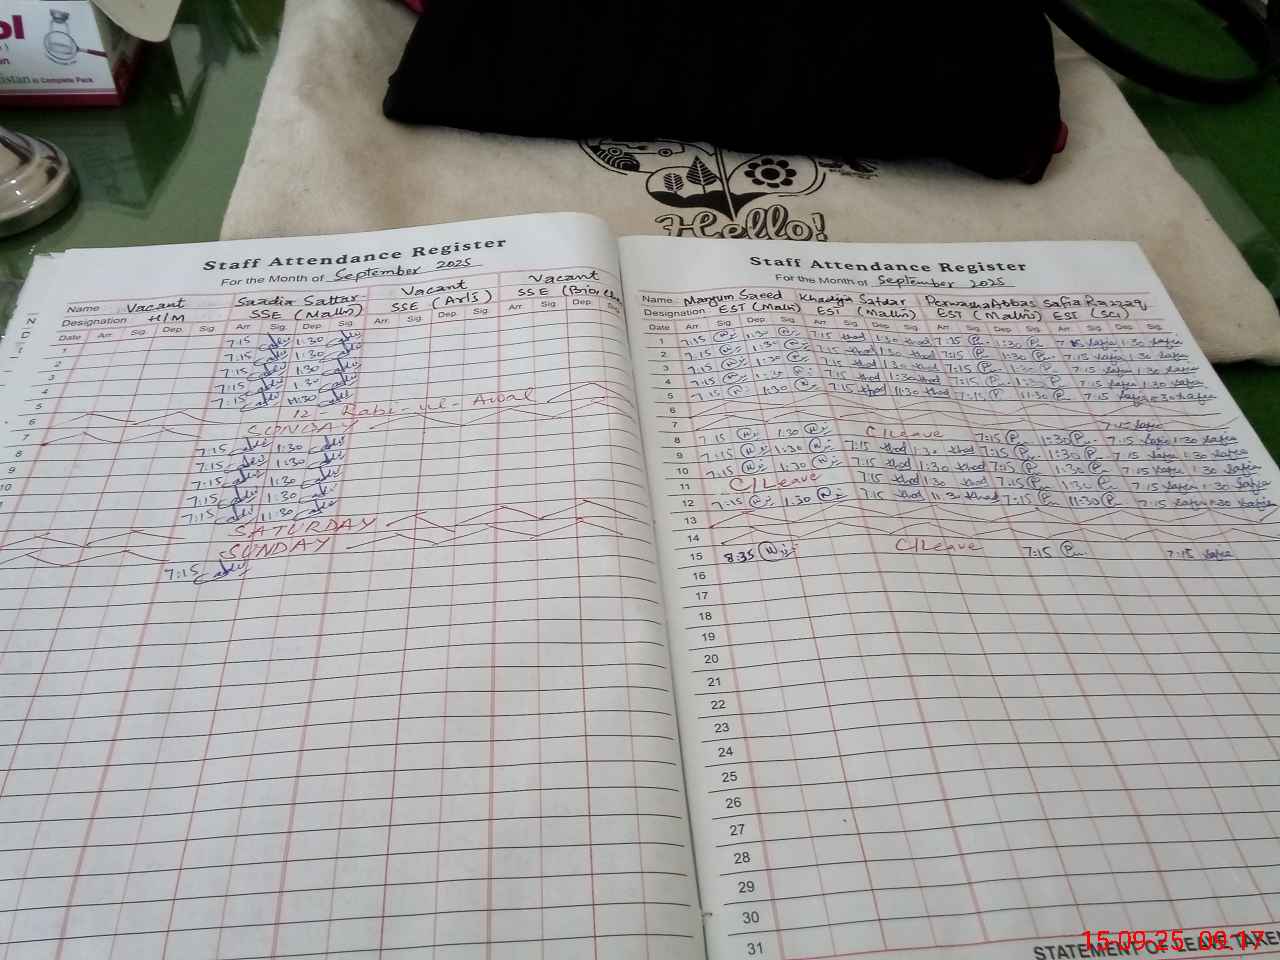 ol
istan in Complete Pack
Hello!
Staff Attendance Register
For the Month of September 2025
Name Vacant Saadia Sattar Vacant Vacant
Designation H/M SSE (Maths) SSE (Arts) SSE
Date Arr. Sig. Dep. Sig. Arr Sig. Dep. Sig. Arr. Sig. Dep. Sig. Arr. Sig Dep. Sig
1 7:15 1:30
2 7:15 1:30
3 7:15 1:30
4 7:15 1:30
5 7:15 11:30
6 12 Rabi-ul-Awal
7 SUNDAY
8 7:15 1:30
9 7:15 1:30
10 7:15 1:30
7:15 1:30
7:15 11:30
SATURDAY
SUNDAY
7:15
Staff Attendance Register
For the Month of September 2025
Name Saeed Khadija Safdar Safia Razzaq
Designation EST (Maths) EST (Maths) EST (Maths) EST (Sci)
Date Arr. Sig. Dep. Sig. Arr. Sig. Dep. Sig. Arr. Sig. Dep. Sig. Arr. Sig. Dep. Sig.
1 7:15 1:30 7:15 1:30 7:15 1:30 7:15 Safia 1:30 Safia
2 7:15 1:30 7:15 1:30 7:15 1:30 7:15 Safia 1:30 Safia
3 7:15 1:30 7:15 1:30 7:15 1:30 7:15 Safia 1:30 Safia
4 7:15 1:30 7:15 1:30 7:15 1:30 7:15 Safia 1:30 Safia
5 7:15 11:30 7:15 11:30 7:15 11:30 7:15 Safia 11:30 Safia
6
7 7:15 Safia
8 7:15 1:30 C/Leave 7:15 1:30 7:15 Safia 1:30 Safia
9 7:15 1:30 7:15 1:30 7:15 1:30 7:15 Safia 1:30 Safia
10 7:15 1:30 7:15 1:30 7:15 1:30 7:15 Safia 1:30 Safia
11 C/Leave 7:15 1:30 7:15 1:30 7:15 Safia 1:30 Safia
12 7:15 1:30 7:15 11:30 7:15 11:30 7:15 Safia 11:30 Safia
13
14
15 8:35 C/Leave 7:15 7:15 Safia
16
17
18
19
20
21
22
23
24
25
26
27
28
29
30
31
STATEMENT OF LEAVE TAKEN
15.09.25 09:17